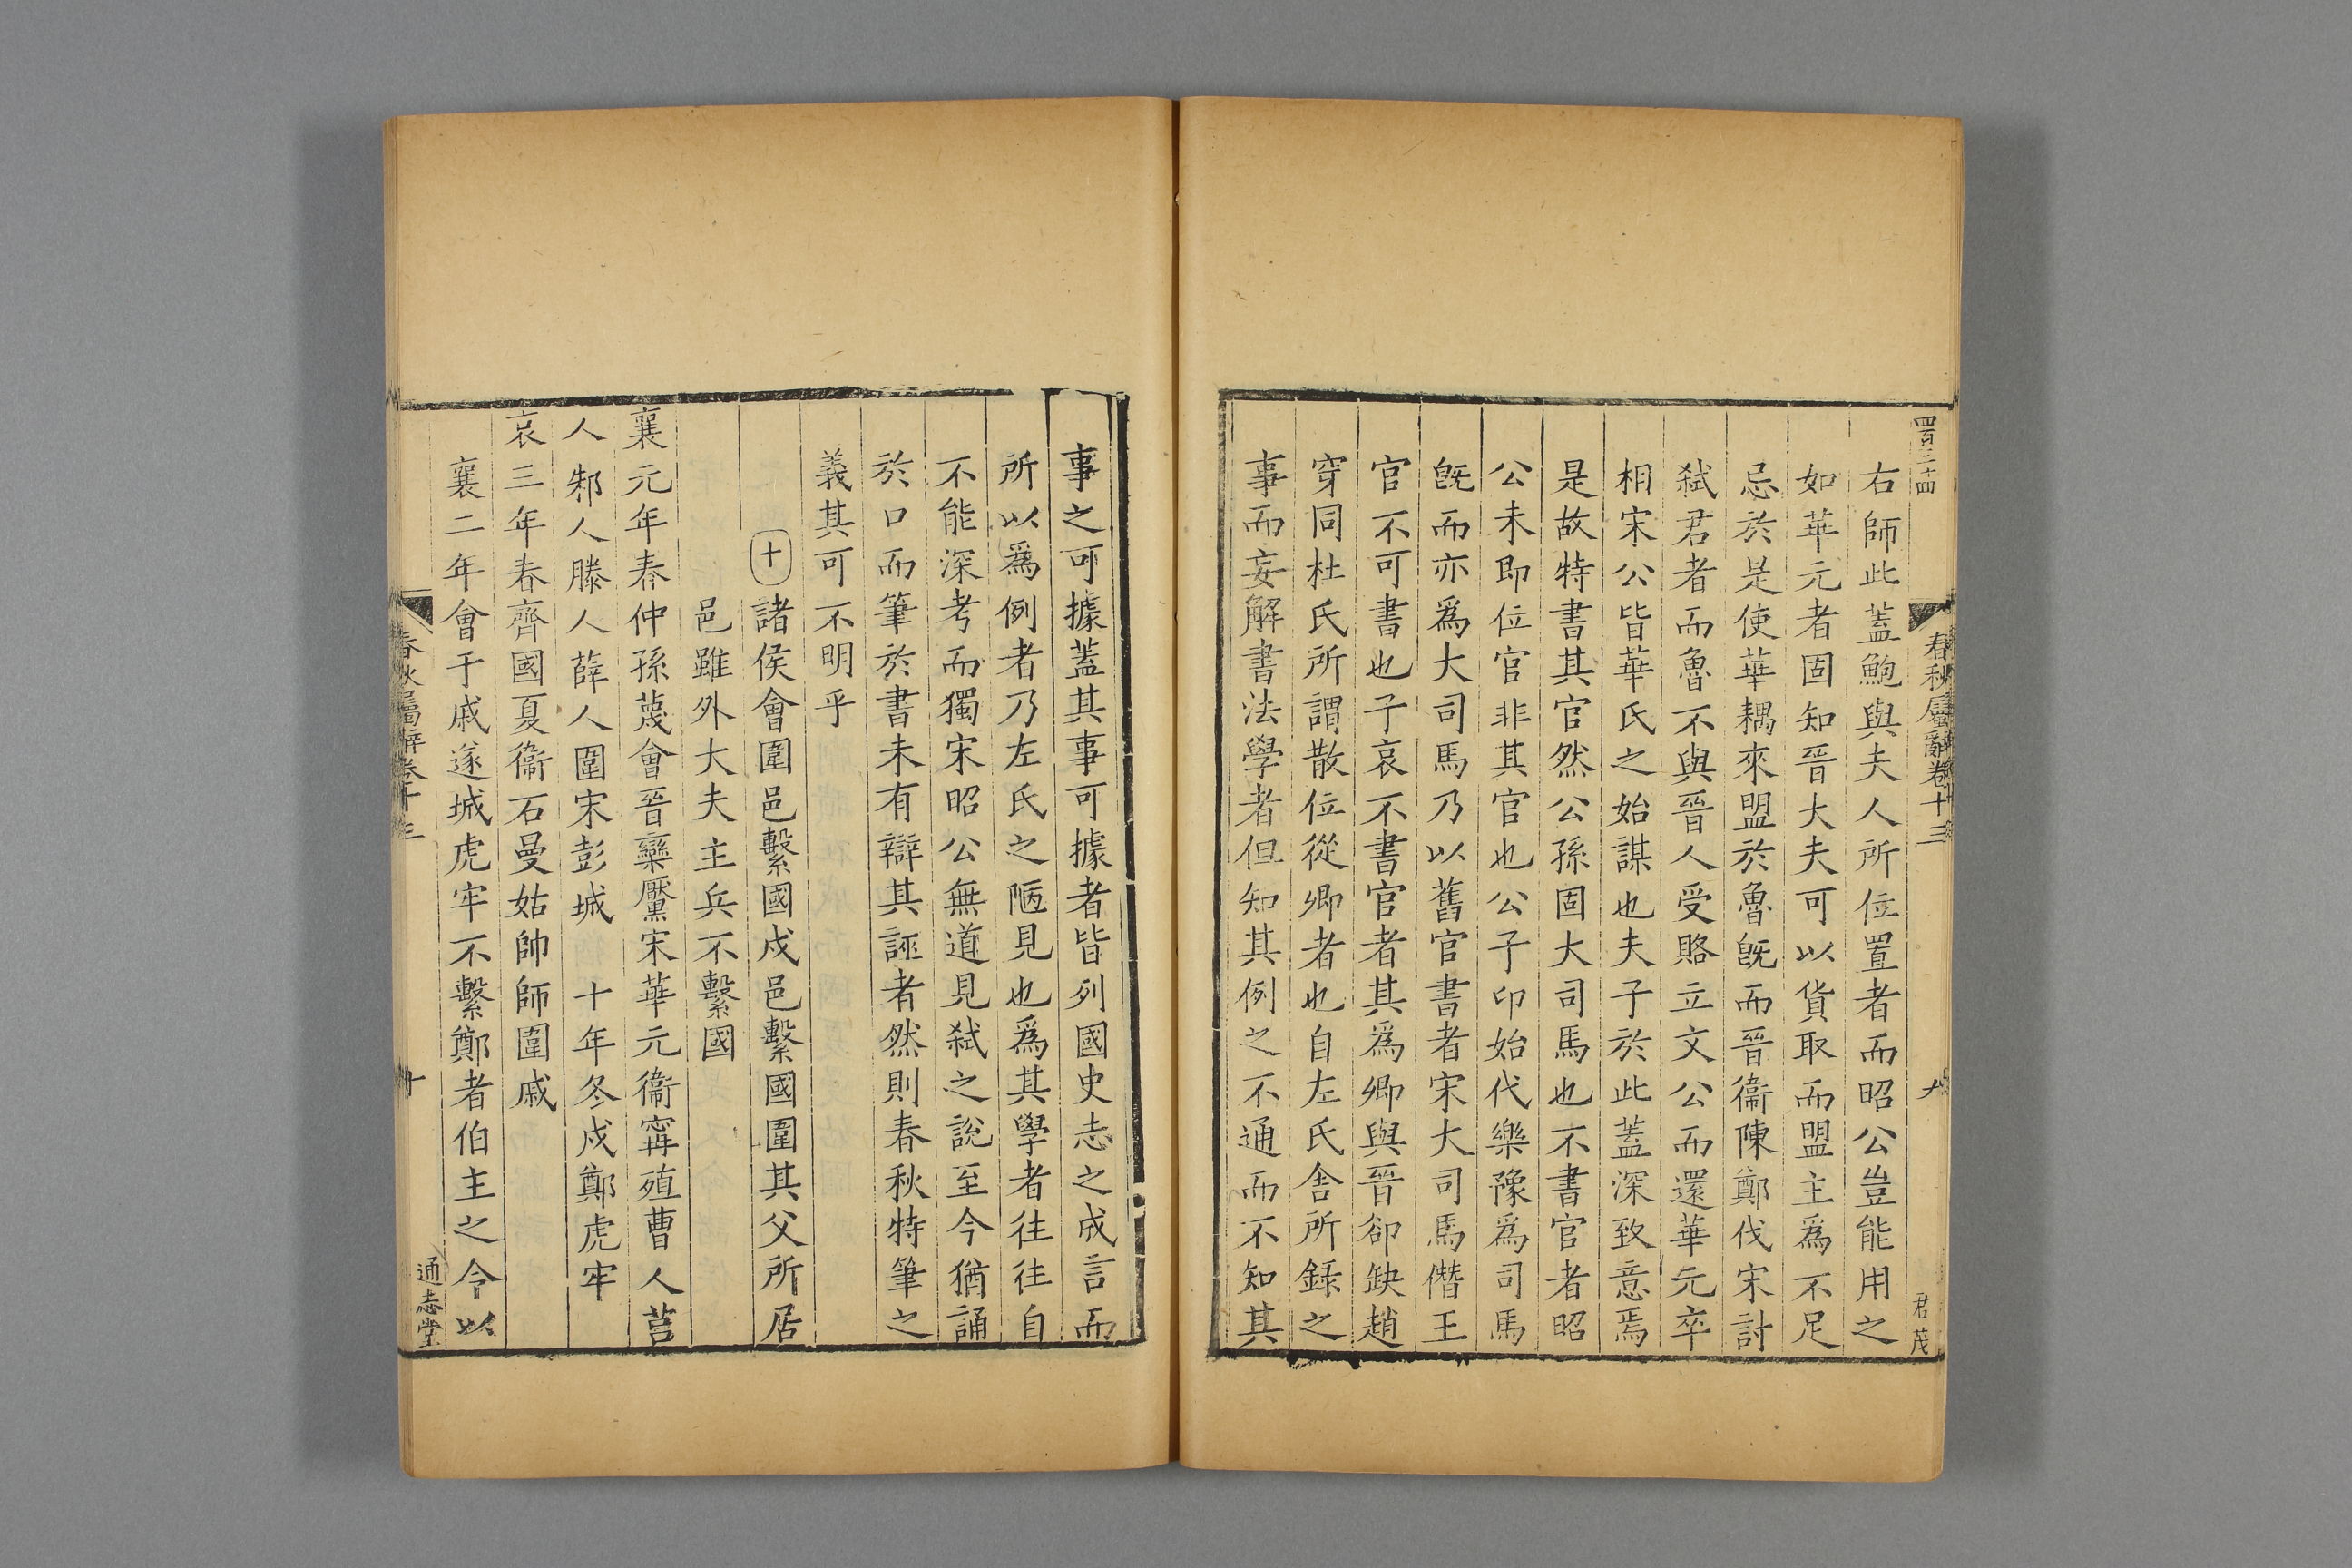 四百三十四
春秋屬辭卷十三
九
君茂
右師此蓋鮑與夫人所位置者而昭公豈能用之
如華元者固知晉大夫可以貨取而盟主爲不足
忌於是使華耦來盟於魯旣而晉衞陳鄭伐宋討
弑君者而魯不與晉人受賂立文公而還華元卒
相宋公皆華氏之始謀也夫子於此蓋深致意焉
是故特書其官然公孫固大司馬也不書官者昭
公未即位官非其官也公子卬始代樂豫爲司馬
旣而亦爲大司馬乃以舊官書者宋大司馬僭王
官不可書也子哀不書官者其爲卿與晉卻缺趙
穿同杜氏所謂散位從卿者也自左氏舍所錄之
事而妄解書法學者但知其例之不通而不知其
事之可據蓋其事可據者皆列國史志之成言而
所以爲例者乃左氏之陋見也爲其學者往往自
不能深考而獨宋昭公無道見弑之說至今猶誦
於口而筆於書未有辯其誣者然則春秋特筆之
義其可不明乎
十諸侯會圍邑繫國戍邑繫國圍其父所居
邑雖外大夫主兵不繫國
襄元年春仲孫蔑會晉欒黶宋華元衞甯殖曹人莒
人邾人滕人薛人圍宋彭城 十年冬戍鄭虎牢
哀三年春齊國夏衞石曼姑帥師圍戚
襄二年會于戚遂城虎牢不繫鄭者伯主之令以
春秋屬辭卷十三
十
通志堂